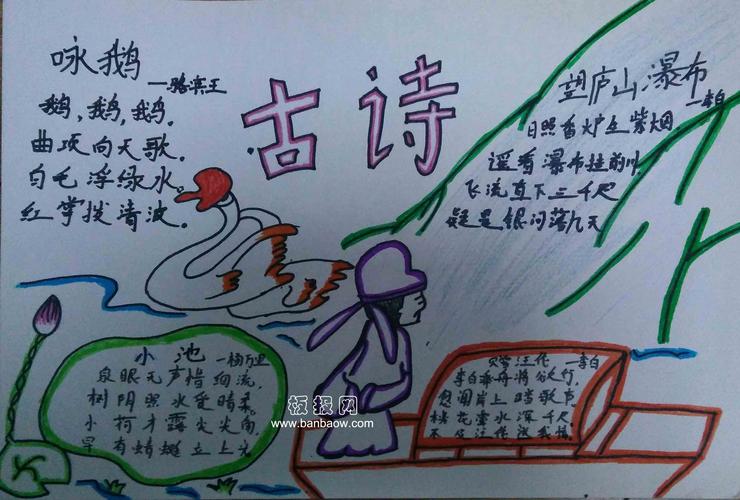 古诗
咏鹅
—骆宾王
鹅,鹅,鹅,
曲项向天歌。
白毛浮绿水。
红掌拨清波。
望庐山瀑布
—李白
日照香炉生紫烟
遥看瀑布挂前川
飞流直下三千尺
疑是银河落九天
小池 —杨万里
泉眼无声惜细流,
树阴照水爱晴柔。
小 才露尖尖角,
早有蜻蜓立上头
赠汪伦 —李白
李白乘舟将欲行,
忽闻岸上踏歌声
桃花潭水深千尺
不及汪伦送我情。
板报网
www.banbaow.com